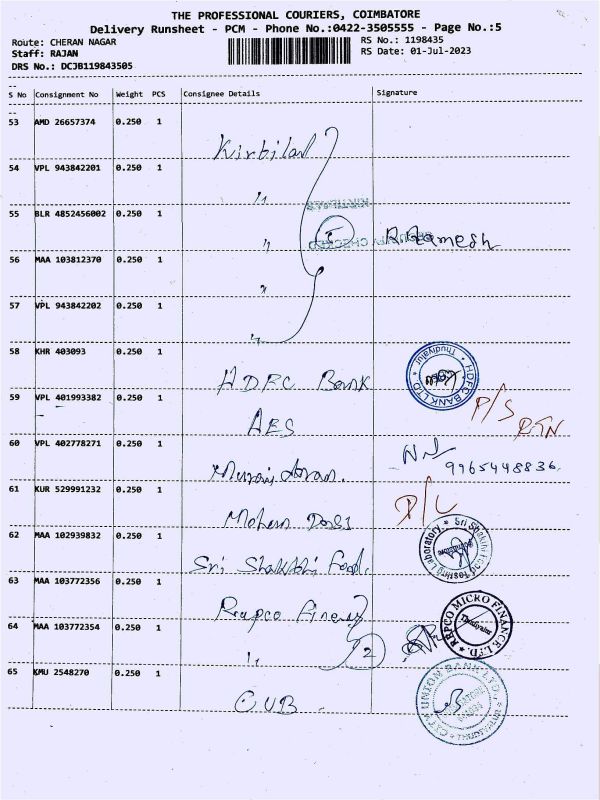 THE PROFESSIONAL COURIERS, COIMBATORE
Delivery Runsheet - PCM - Phone No.:0422-3505555 - Page No.:5
Route: CHERAN NAGAR RS No.: 1198435
Staff: RAJAN RS Date: 01-Jul-2023
DRS No.: DCJB119843505
S No Consignment No Weight PCS Consignee Details Signature
53 AMD 26657374 0.250 1
54 VPL 943842201 0.250 1 "
55 BLR 4852456002 0.250 1 " 5 R.Ramesh
56 MAA 103812370 0.250 1 "
57 VPL 943842202 0.250 1 "
58 KHR 403093 0.250 1 HDFC Bank HDFC BANK LTD Thudiyalur
59 VPL 401993382 0.250 1 AES P/S RTN
60 VPL 402778271 0.250 1 9965448836
61 KUR 529991232 0.250 1 Mohan Doss D/L
62 MAA 102939832 0.250 1 Sri Shakthi Food. Sri Shakthi Food Testing Laboratory
63 MAA 103772356 0.250 1 Repco Finance REPCO MICRO FINANCE LTD. Thudiyalur
64 MAA 103772354 0.250 1 " 2
65 KMU 2548270 0.250 1 CUB CITY UNION BANK LTD.